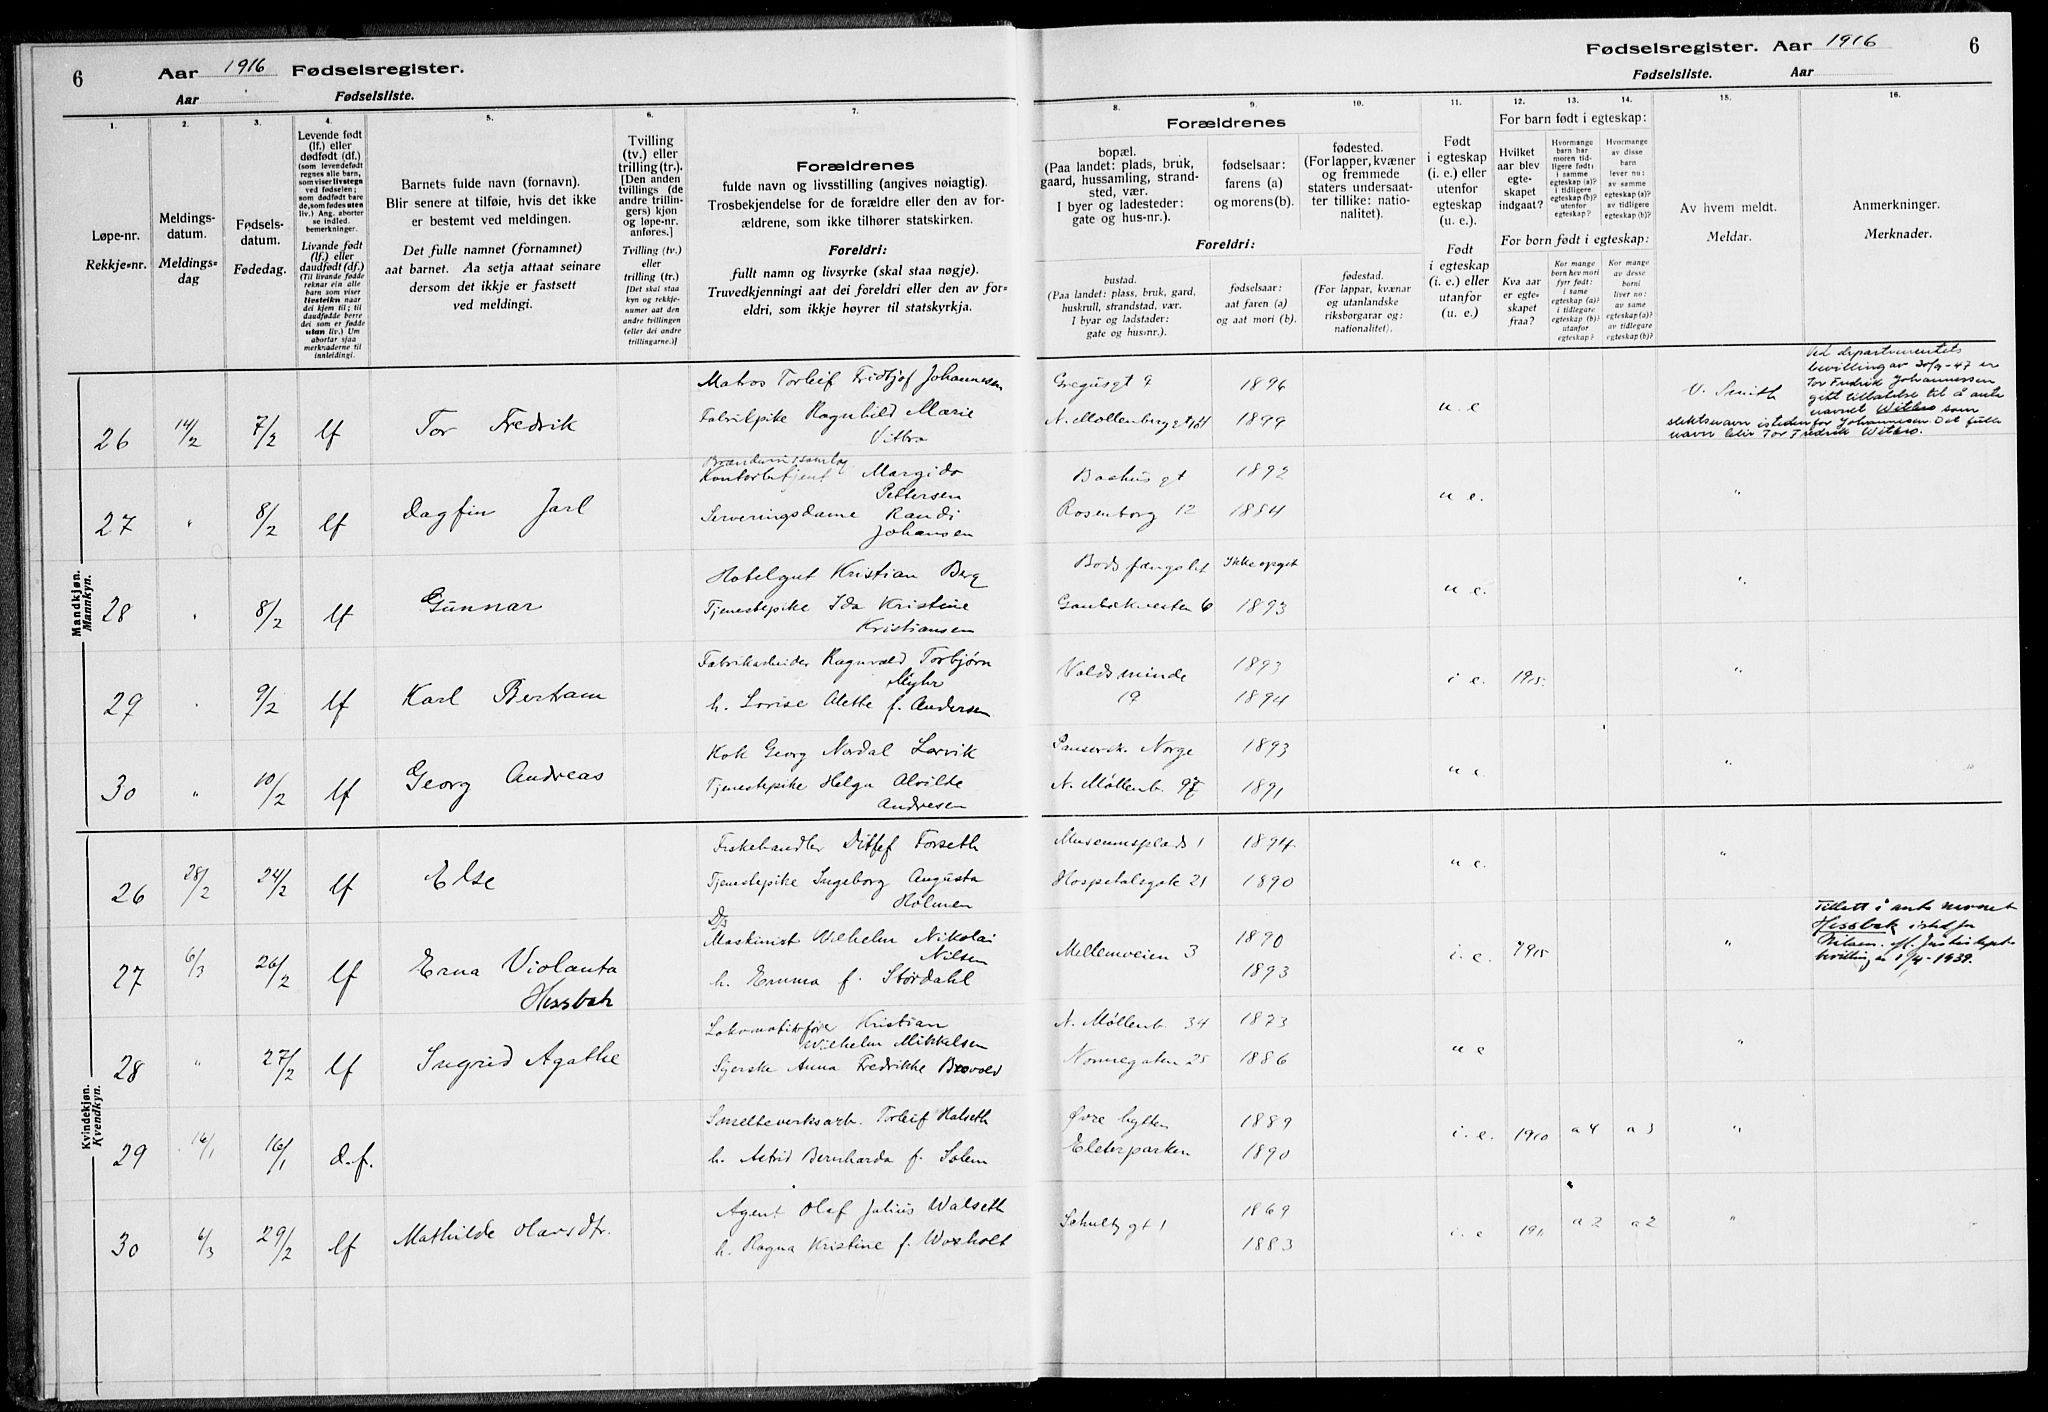 6 Aar 1916 Fødselsregister.
Aar Fødselsliste.
Fødselsregister. Aar 1916 6
Fødselsliste. Aar
1.
Løpe-nr.
Rekkje-nr.
2.
Meldings-
datum.
Meldings-
dag
3.
Fødsels-
datum.
Fødedag.
4.
Levende født
(lf.) eller
dødfødt (df.)
(som levendefødt
regnes alle barn,
som viser livstegn
ved fødselen;
som dødfødt bare
de, som fødes uten
liv.) Ang. aborter
se indled.
bemerkninger.
Livande født
(lf.) eller
daudfødt (df.)
(Til livande fødde
reknar ein alle
barn som viser
livsteikn naar
dei kjem til; til
daudfødde berre
dei som er fødde
utan liv.) Um
abortar sjaa
merknaderne til
innleidingi.
5.
Barnets fulde navn (fornavn).
Blir senere at tilføie, hvis det ikke
er bestemt ved meldingen.
Det fulle namnet (fornamnet)
aat barnet. Aa setja attaat seinare
dersom det ikkje er fastsett
ved meldingi.
6.
Tvilling
(tv.) eller
trilling (tr.).
[Den anden
tvillings (de
andre trillin-
gers) kjøn
og løpe-nr.
anføres.]
Tvilling (tv.)
eller
trilling (tr.)
[Det skal staa
kyn og rekkje-
numer aat den
andre tvillingen
(eller dei andre
trillingarne.)]
7.
Forældrenes
fulde navn og livsstilling (angives nøiagtig).
Trosbekjendelse for de forældre eller den av for-
ældrene, som ikke tilhører statskirken.
Foreldri:
fullt namn og livsyrke (skal staa nøgje).
Truvedkjenningi aat dei foreldri eller den av for-
eldri, som ikkje høyrer til statskyrkja.
Forældrenes
8.
bopæl.
(Paa landet: plads, bruk,
gaard, hussamling, strand-
sted, vær.
I byer og ladesteder:
gate og hus-nr.).
9.
fødselsaar:
farens (a)
og morens (b).
10.
fødested.
(For lapper, kvæner
og fremmede
staters undersaat-
ter tillike: natio-
nalitet).
Foreldri:
bustad.
(Paa landet: plass, bruk, gard,
huskrull, strandstad, vær.
I byar og ladstader:
gate og hus-nr.).
fødselsaar:
aat faren (a)
og aat mori (b).
fødestad.
(For lappar, kvænar
og utanlandske
riksborgarar og:
nationalitet).
11.
Født
i egteskap
(i. e.) eller
utenfor
egteskap
(u. e.).
Født
i egteskap
(i. e.) eller
utanfor
(u. e.)
12. 13. 14.
For barn født i egteskap:
Hvilket
aar blev
egte-
skapet
indgaat?
Hvormange
barn har
moren tid-
ligere født:
i samme
egteskap (a)?
i tidligere
egteskap (b)?
utenfor
egteskap?
Hvormange
av disse
barn
lever nu:
av samme
egteskap (a)?
av tidligere
egteskap (b)?
For born født i egteskap:
Kva aar
er egte-
skapet
fraa?
Kor mange
barn hev mori
fyrr født:
i same
egteskap (a)?
i tidlegare
egteskap (b)?
utanfor
egteskap?
Kor mange
av desse
borni
liver no:
av same
egteskap (a)?
av tidlegare
egteskap (b)?
15.
Av hvem meldt.
Meldar.
16.
Anmerkninger.
Merknader.
Mandkjøn.
Mannkyn.
26 14/2 7/2 lf Tor Fredrik
Matros Torleif Fridtjof Johannesen
Fabrikpike Ragnhild Marie
Vitbro
Gregusgt 9 1896
N. Mollenberggt 64 1899
u. e V. Smith
Ved departementets
bevilling av 30/9-47 er
Tor Fredrik Johannessen
gitt tillatelse til å anta
navnet Witbro som
slektsnavn isteden for Johannesen. Det fulle
navn blir Tor Fredrik Witbro.
27 " 8/2 lf Dagfin Jarl
Kontorbetjent Margido
Pettersen
Serveringsdame Randi
Johansen
Baahus gt 1892
Rosenborg 12 1884
u e. "
28 " 8/2 lf Gunnar
Hotelgut Kristian Berg
Tjenestepike Ida Kristine
Kristiansen
Bodsfængslet Ikke opget
Gaubækveiten 6 1893
u e. "
29 " 9/2 lf Karl Bertram
Fabrikarbeider Ragnvald Torbjørn
Myhr
h. Lovise Alette f. Andersen
Voldsminde 1893
19 1894
i e. 1915. "
30 " 10/2 lf Georg Andreas
Kok Georg Nordal Larvik
Tjenestepike Helga Alvilde
Andresen
Pansersk. Norge 1893
N. Møllenb. 97 1891
u e. "
Kvindekjøn.
Kvendkyn.
26 28/2 24/2 lf Else
Fiskehandler Ditlef Forseth
Tjenestepike Ingeborg Augusta
Holmen
Museumsplads 1 1894
Hospitalsgate 21 1890
u e. "
27 6/3 26/2 lf Erna Violanta
Hessbak
D/s
Maskinist Wilhelm Nikolai
Nilsen
h. Emma f. Stördahl
Mellemveien 3 1890
1893
i. e. 1915 "
Tillatt å anta navnet
Hessbak istedfor
Nilsen. efl. Justisdepts
bevilling av 1/4-1939.
28 " 27/2 lf Ingrid Agathe
Lokomotivfører Kristian
Wilhelm Mikkelsen
Syerske Anna Fredrikke Brovold
N. Møllenb. 34 1873
Nonnegaten 25 1886
u e "
29 16/1 16/1 d.f.
Smelteverksarb. Torleif Halseth
h. Astrid Bernharda f. Solem
Øvre hytten 1889
Elsterparken 1890
i. e. 1910 a 4 a 3 "
30 6/3 29/2 lf Mathilde Olavsdtr.
Agent Olaf Julius Walseth
h. Ragna Kristine f. Woxholt
Schultz gt 1 1869
1883
i. e 1911 a 2 a 2 "